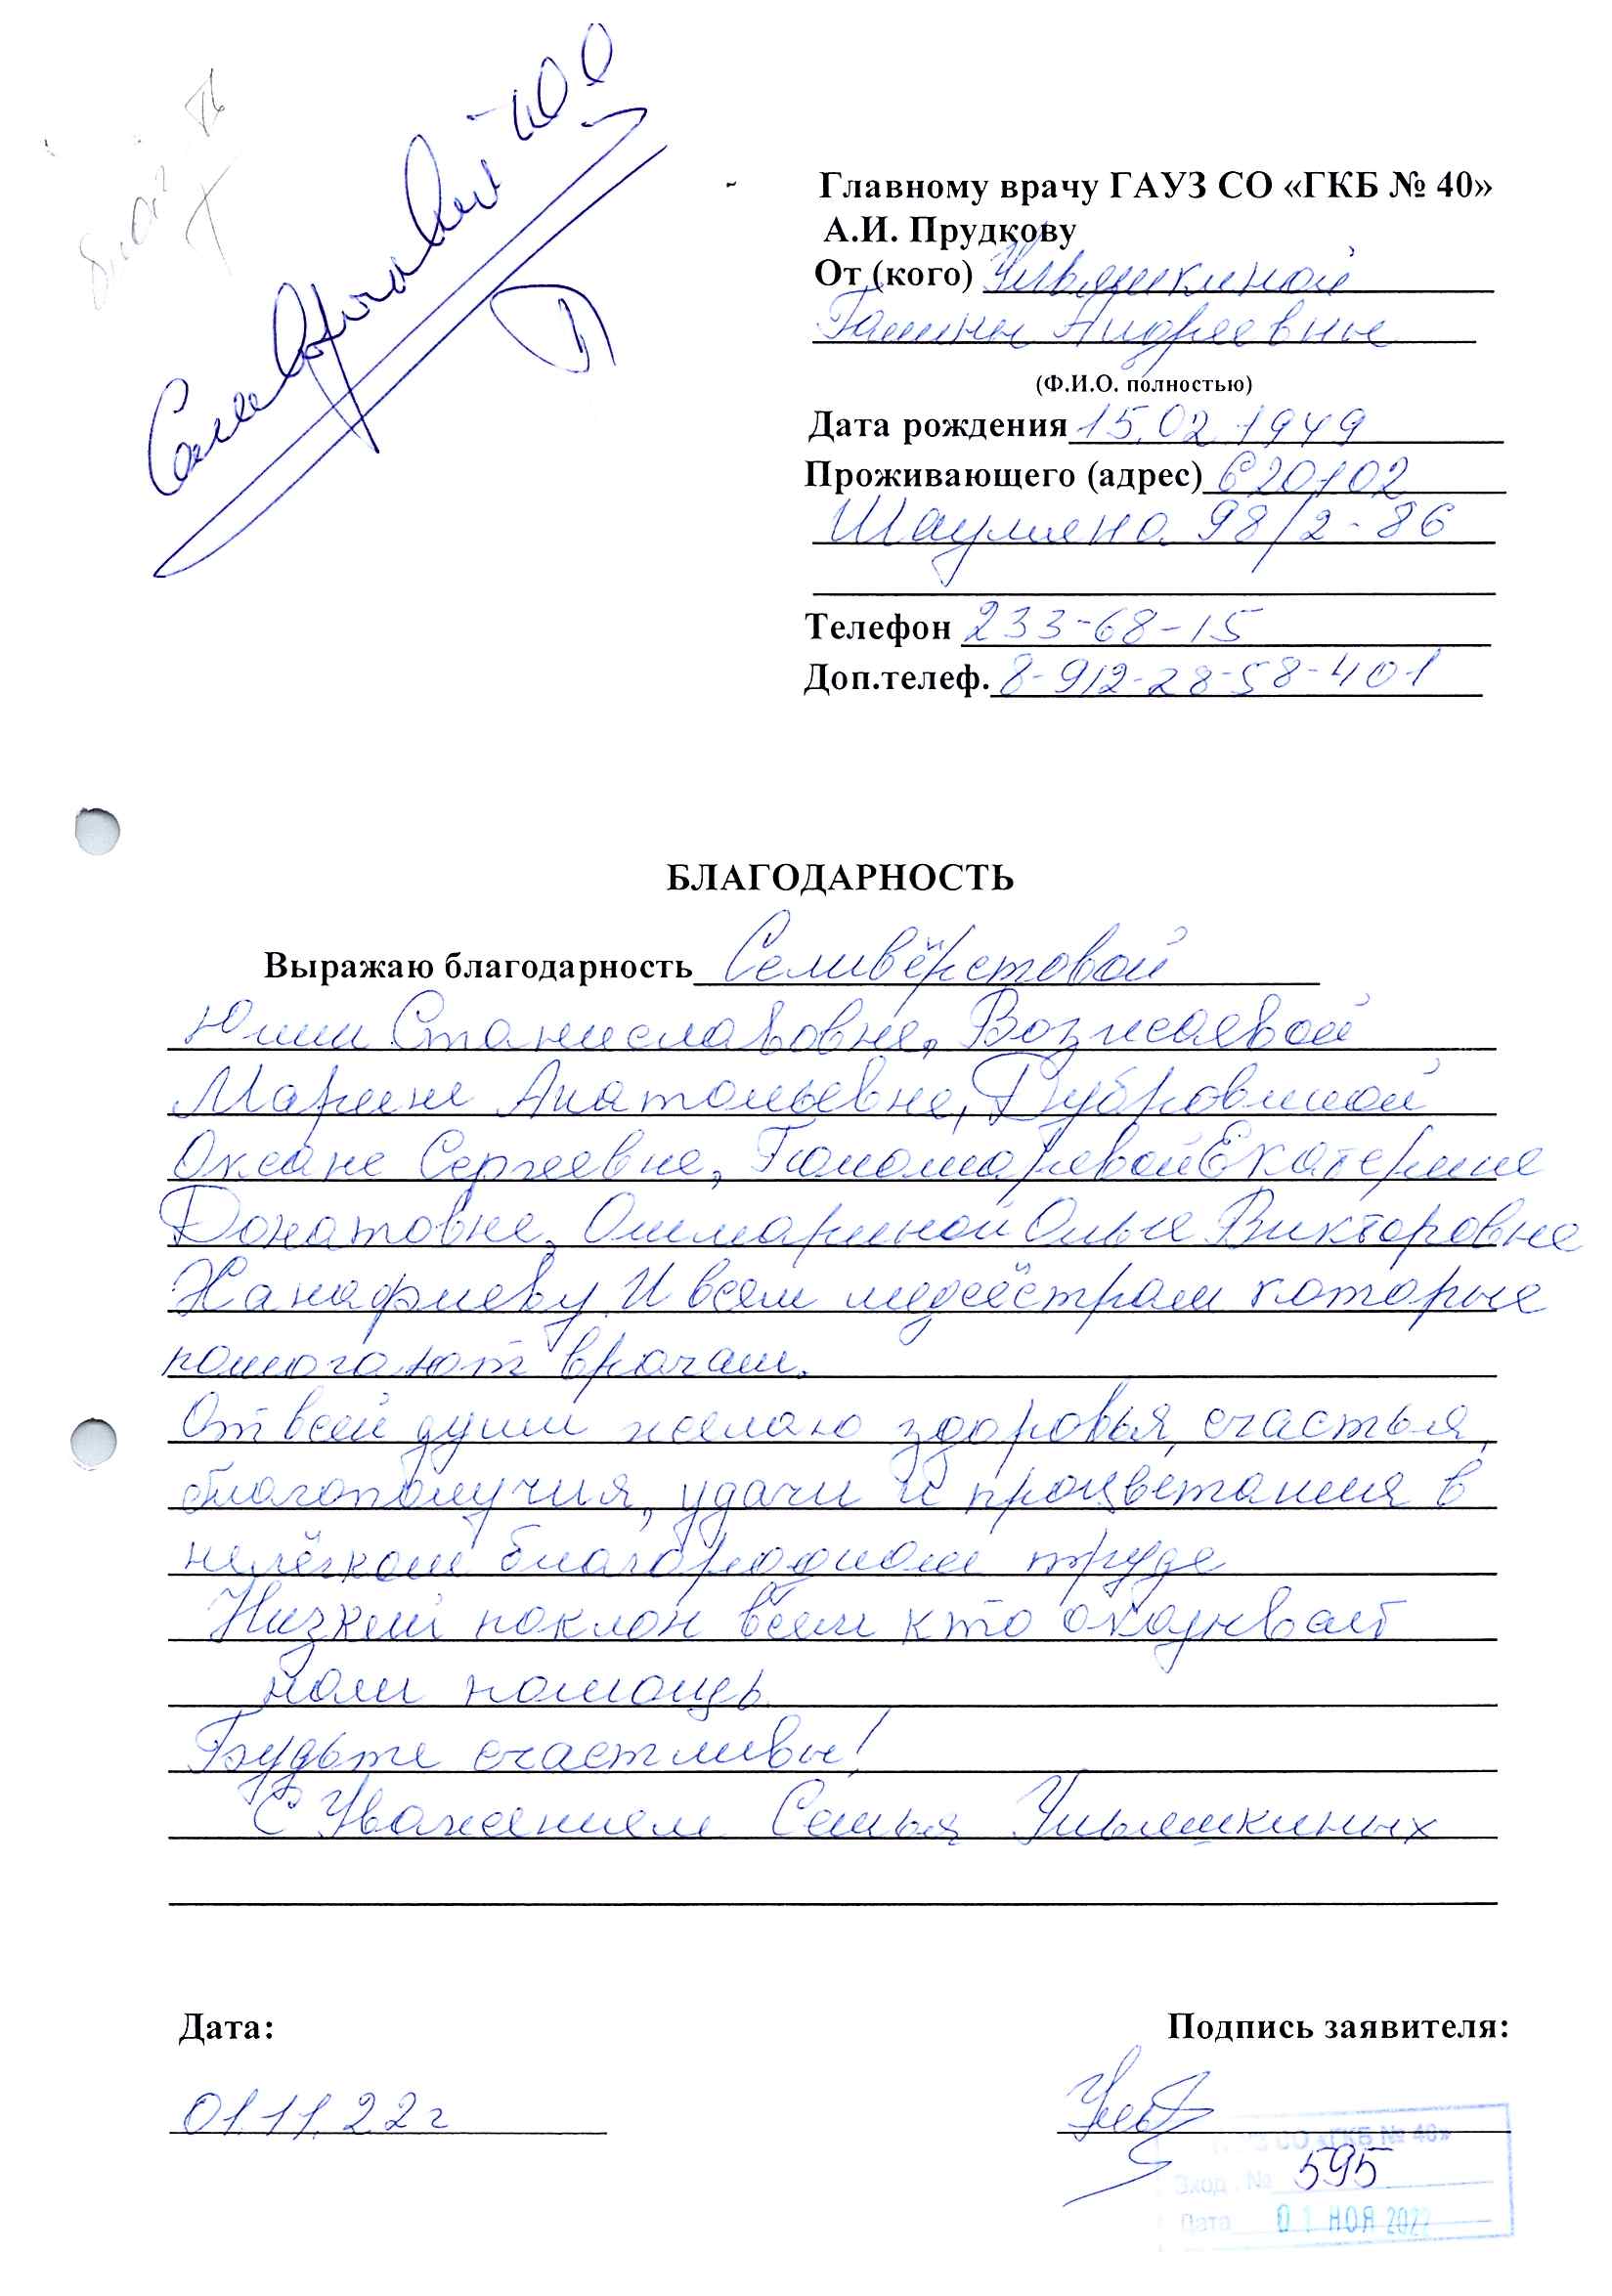 Главному врачу ГАУЗ СО «ГКБ № 40»
А.И. Прудкову
От (кого) Ульяшкиной
Галины Андреевны
(Ф.И.О. полностью)
Дата рождения 15.02.1949
Проживающего (адрес) 620102
Шаумяна 98/2-86
Телефон 233-68-15
Доп.телеф. 8-912-28-58-401
БЛАГОДАРНОСТЬ
Выражаю благодарность Селивёрстовой
Юлии Станиславовне, Возисаевой
Марине Анатольевне, Дубровиной
Оксане Сергеевне, Пономаревой Екатерине
Донатовне, Ошмариной Ольге Викторовне
Ханафиеву И всем медсёстрам которые
помогают врачам.
От всей души желаю здоровья, счастья,
благополучия, удачи и процветания в
нелёгком благородном труде
Низкий поклон всем кто оказывает
нам помощь
Будьте счастливы!
С Уважением Семья Ульяшкиных
Дата:
Подпись заявителя:
01.11.22г
СО «ГКБ № 40»
Вход. № 595
Дата 01 НОЯ 2022